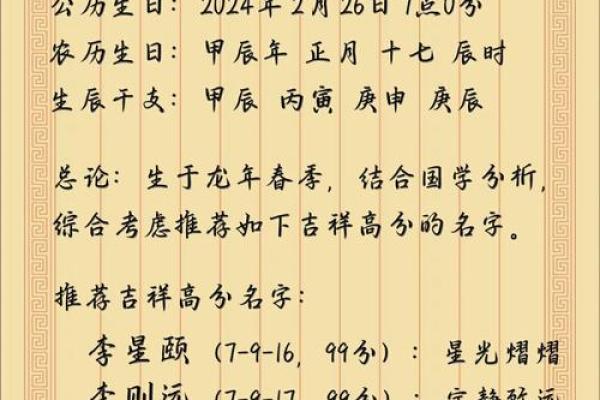 公历生日：2024年2月26日 7点0分
农历生日：甲辰年 正月 十七 辰时
生辰干支：甲辰 丙寅 庚申 庚辰
总论：生于龙年春季，结合国学分析，
综合考虑推荐如下吉祥高分的名字。
推荐吉祥高分名字：
李星颐（7-9-16，99分）：星光熠熠
李则远（7-9-17，99分）：宁静致远